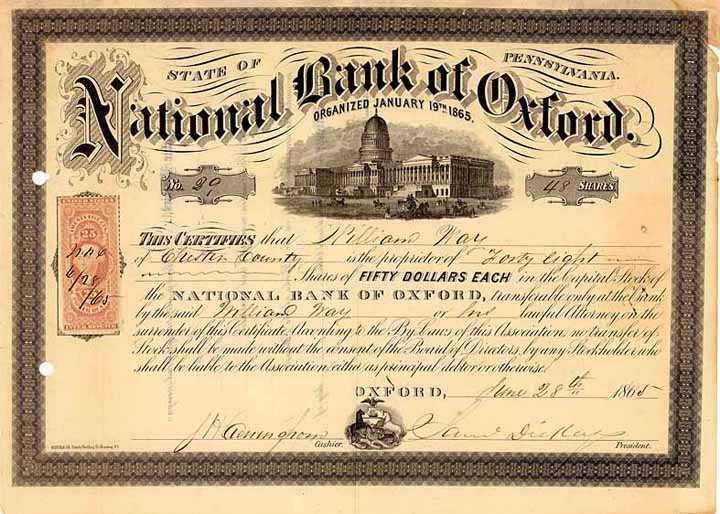 STATE OF PENNSYLVANIA.
National Bank of Oxford.
ORGANIZED JANUARY 19TH 1865.
No. 29
48 SHARES
THIS CERTIFIES that William Way
of Chester County is the proprietor of Forty eight
Shares of FIFTY DOLLARS EACH in the Capital Stock of
the NATIONAL BANK OF OXFORD, transferable only at the Bank
by the said William Way or his lawful Attorney on the
surrender of this Certificate. According to the By Laws of this Association, no transfer of
Stock shall be made without the consent of the Board of Directors, by any Stockholder who
shall be liable to the Association, either as principal debtor or otherwise.
OXFORD, June 28th 1865
Cashier.
President.
25
6/28
1865